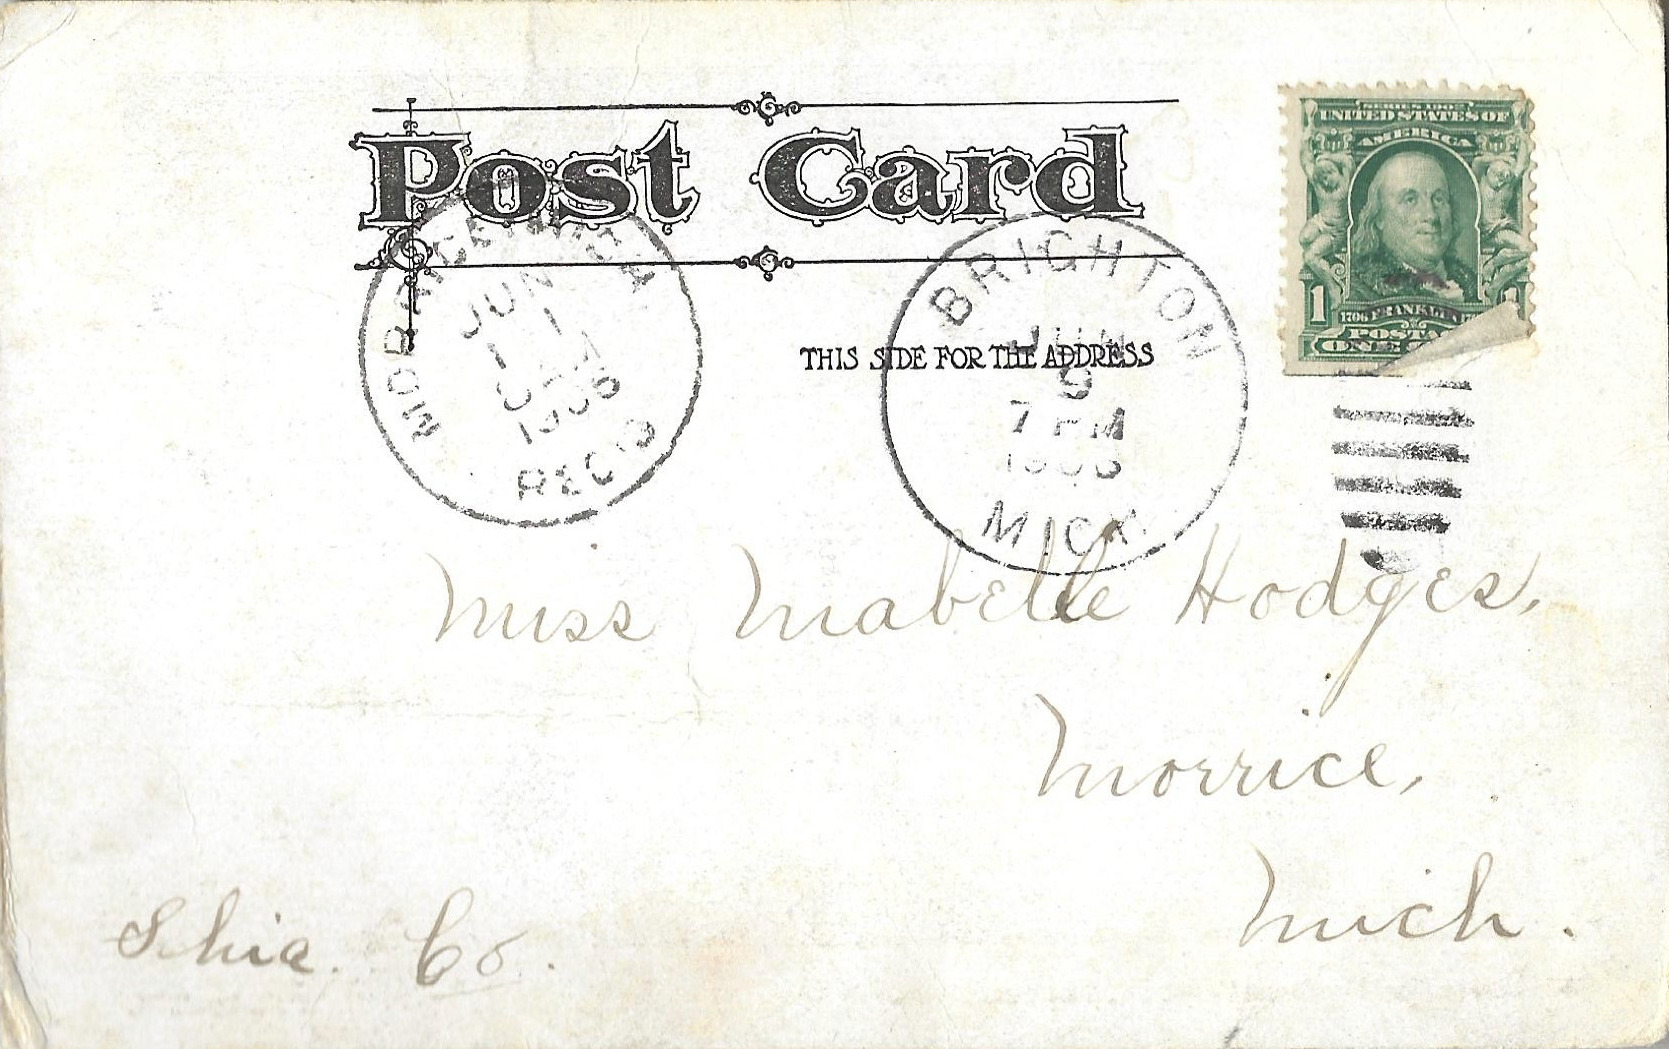 Post Card
SERIES 1902
UNITED STATES OF
AMERICA
1 1
1706 FRANKLIN 17
POSTA
ONE
THIS SIDE FOR THE ADDRESS
MORRICE
JUN
1
1906
REC'D
BRIGHTON
JUN
9
7 PM
1906
MICH.
Miss Mabelle Hodges,
Morrice,
Mich.
Shia. Co.